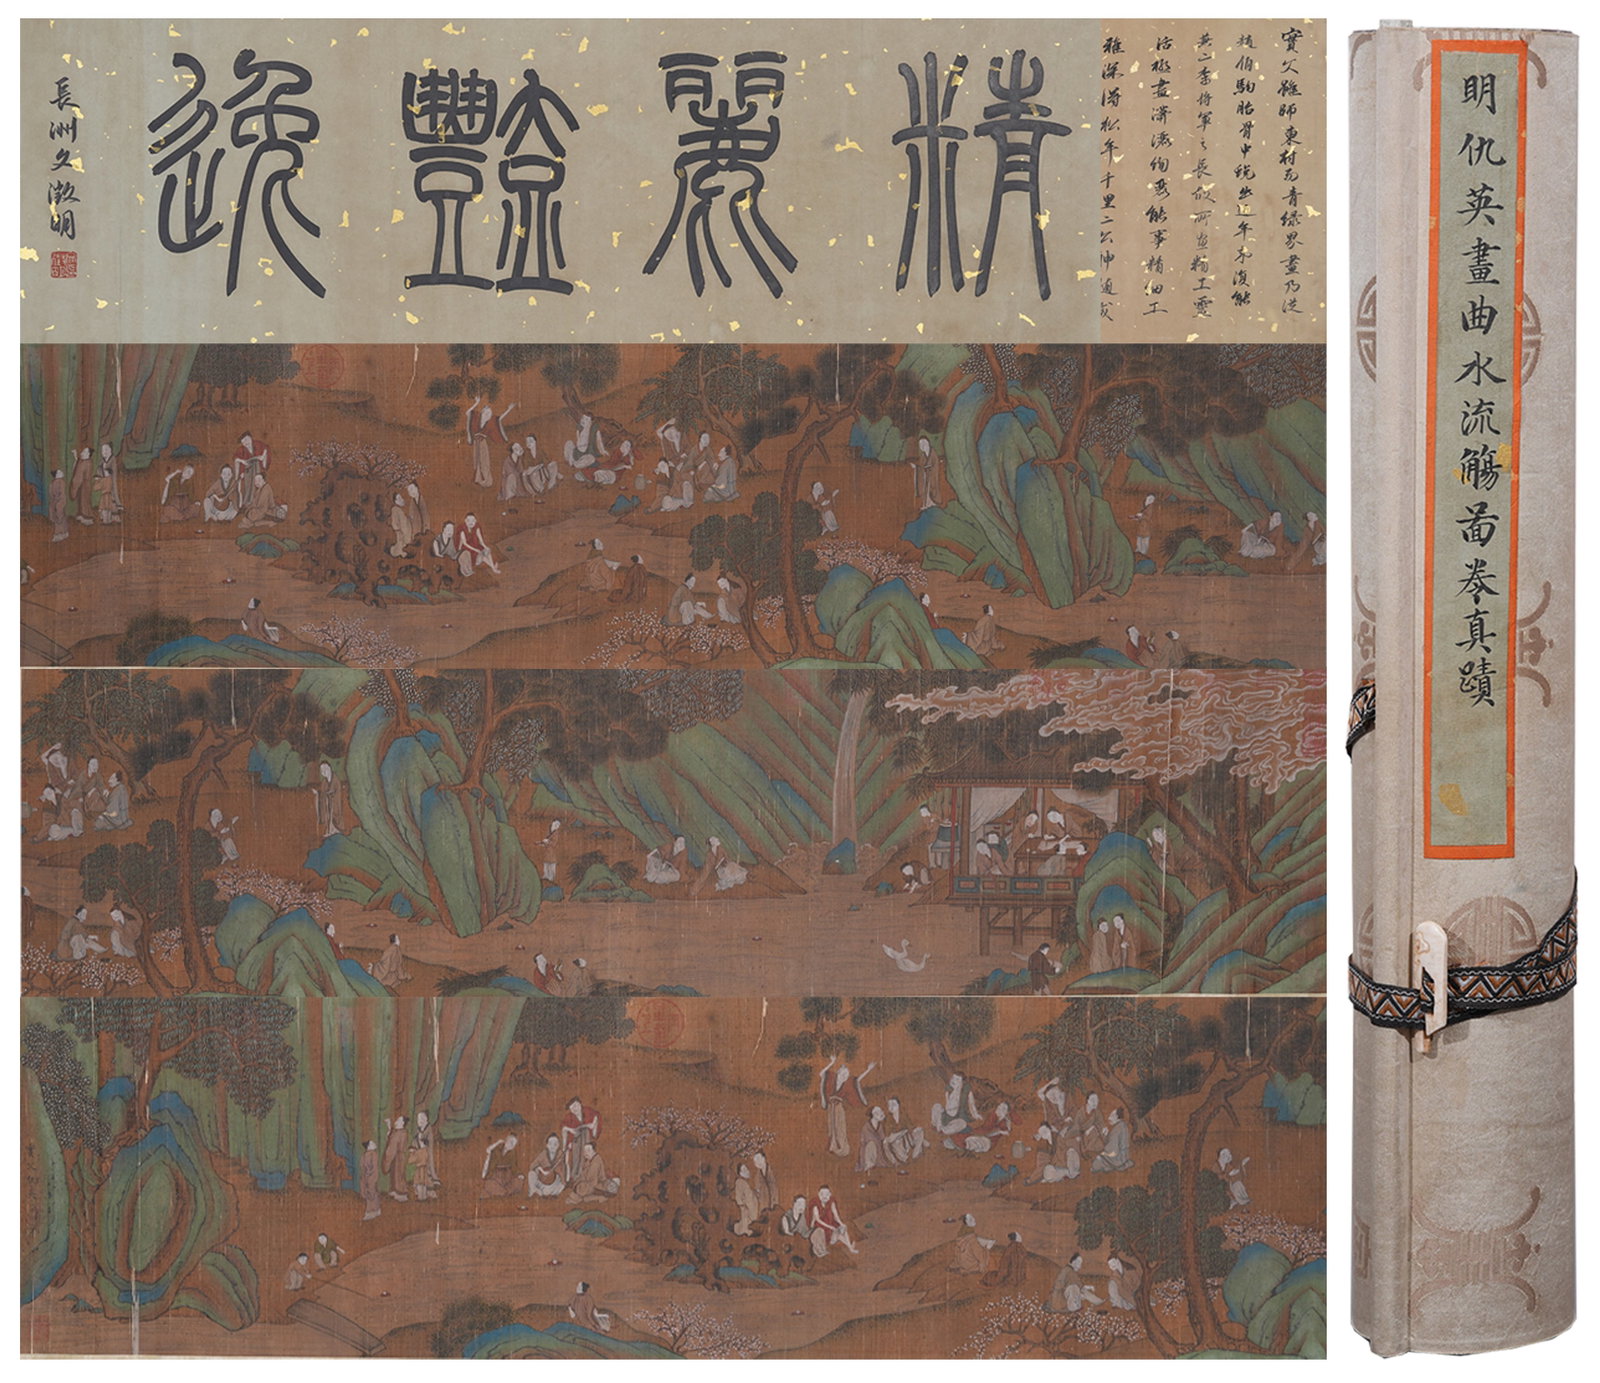 明仇英畫曲水流觴啚卷真蹟
實父雖師東村而青綠界畫乃從
趙伯駒胎骨中蛻出近年不復能
兼二李將軍之長故所畫精工靈
活極盡瀟灑絢麗能事精細工
雅深得松年千里二公神通
精麗豔逸
長洲文徵明